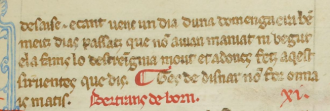 desaise. e cant uenc un dia duna domenga eui ben
meitz dias passatz que non auian maniat ni begut
e la fams lo destreignia mout et adoncs fetz aqest
siruentes que ditz. Ges de disnar non fos oimai
is matis. Bertrans de born. XI.